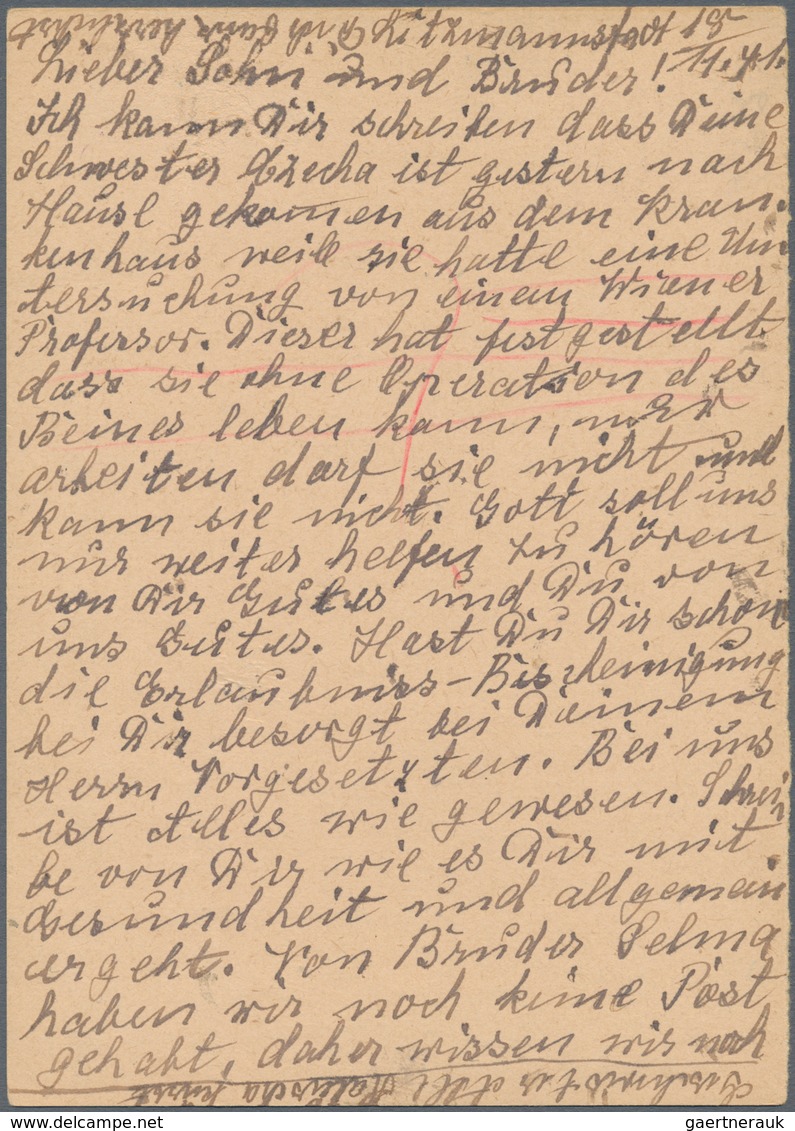 Litzmannstadt 18/11.41.
Lieber Sohn und Bruder!
Ich kann Dir schreiben dass Deine
Schwester Czecha ist gestern nach
Hause gekomen aus dem Kran-
kenhaus weil sie hatte eine Un-
tersuchung von einem Wiener
Professor. Dieser hat festgestellt
dass sie ohne Operation des
Beines leben kann, nur
arbeiten darf sie nicht und
kann sie nicht. Gott soll uns
nur weiter helfen zu hören
von Dir Gutes und Du von
uns Gutes. Hast Du Dir schon
die Erlaubniss-Bischeinigung
bei Dir besorgt bei Deinem
Herrn Vorgesetzten. Bei uns
ist Alles wie gewesen. Schrei-
be von Dir wie es Dir mit
Gesundheit und allgemein
ergeht. Von Bruder Selma
haben wir noch keine Post
gehabt, daher wissen wir noch
gaertnerauk ©